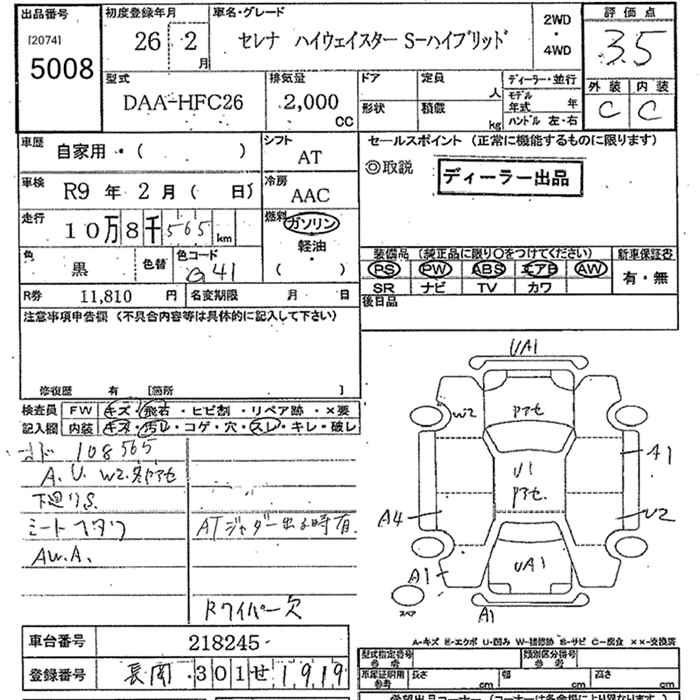 出品番号 初度登録年月 車名・グレード 2WD・4WD 評価点
[2074] 5008 26 2月 セレナ ハイウェイスター S-ハイブリッド 3.5
型式 排気量 ドア 定員 人 ディーラー・並行 外装 内装
DAA-HFC26 2,000 CC 形状 積載 kg モデル年式 年 C C
ハンドル 左・右
車歴 自家用・( ) シフト AT セールスポイント (正常に機能するものに限ります)
◎取説 ディーラー出品
車検 R9年 2月 ( 日) 冷房 AAC
走行 10万8千565km 燃料 ガソリン
軽油・( )
色 黒 色替 色コード G41 装備品 (純正品に限り○をつけてください) 新車保証書
PS PW ABS エアB AW 有・無
R券 11,810 円 名変期限 月 日 SR ナビ TV カワ
注意事項申告欄 (不具合内容等は具体的に記入して下さい) 後日品
修復歴 有 [箇所 ]
検査員 FW キズ・飛石・ヒビ割・リペア跡・×要
記入欄 内装 キズ・汚レ・コゲ・穴・スレ・キレ・破レ
108565
A.U.W2.
下廻りS.
AW.A.
ATジャダー出る時有.
Rワイパー欠
UA1
W2
U1
A1
A4
U2
UA1
A1
スペア
A1
A-キズ E-エクボ U-凹み W-補修跡 S-サビ C-腐食 ××-交換済
車台番号 218245
型式指定番号 参考 類別区分番号 参考
登録番号 長岡 301 せ 1919
車庫証明用 参考 長さ cm 幅 cm 高さ cm